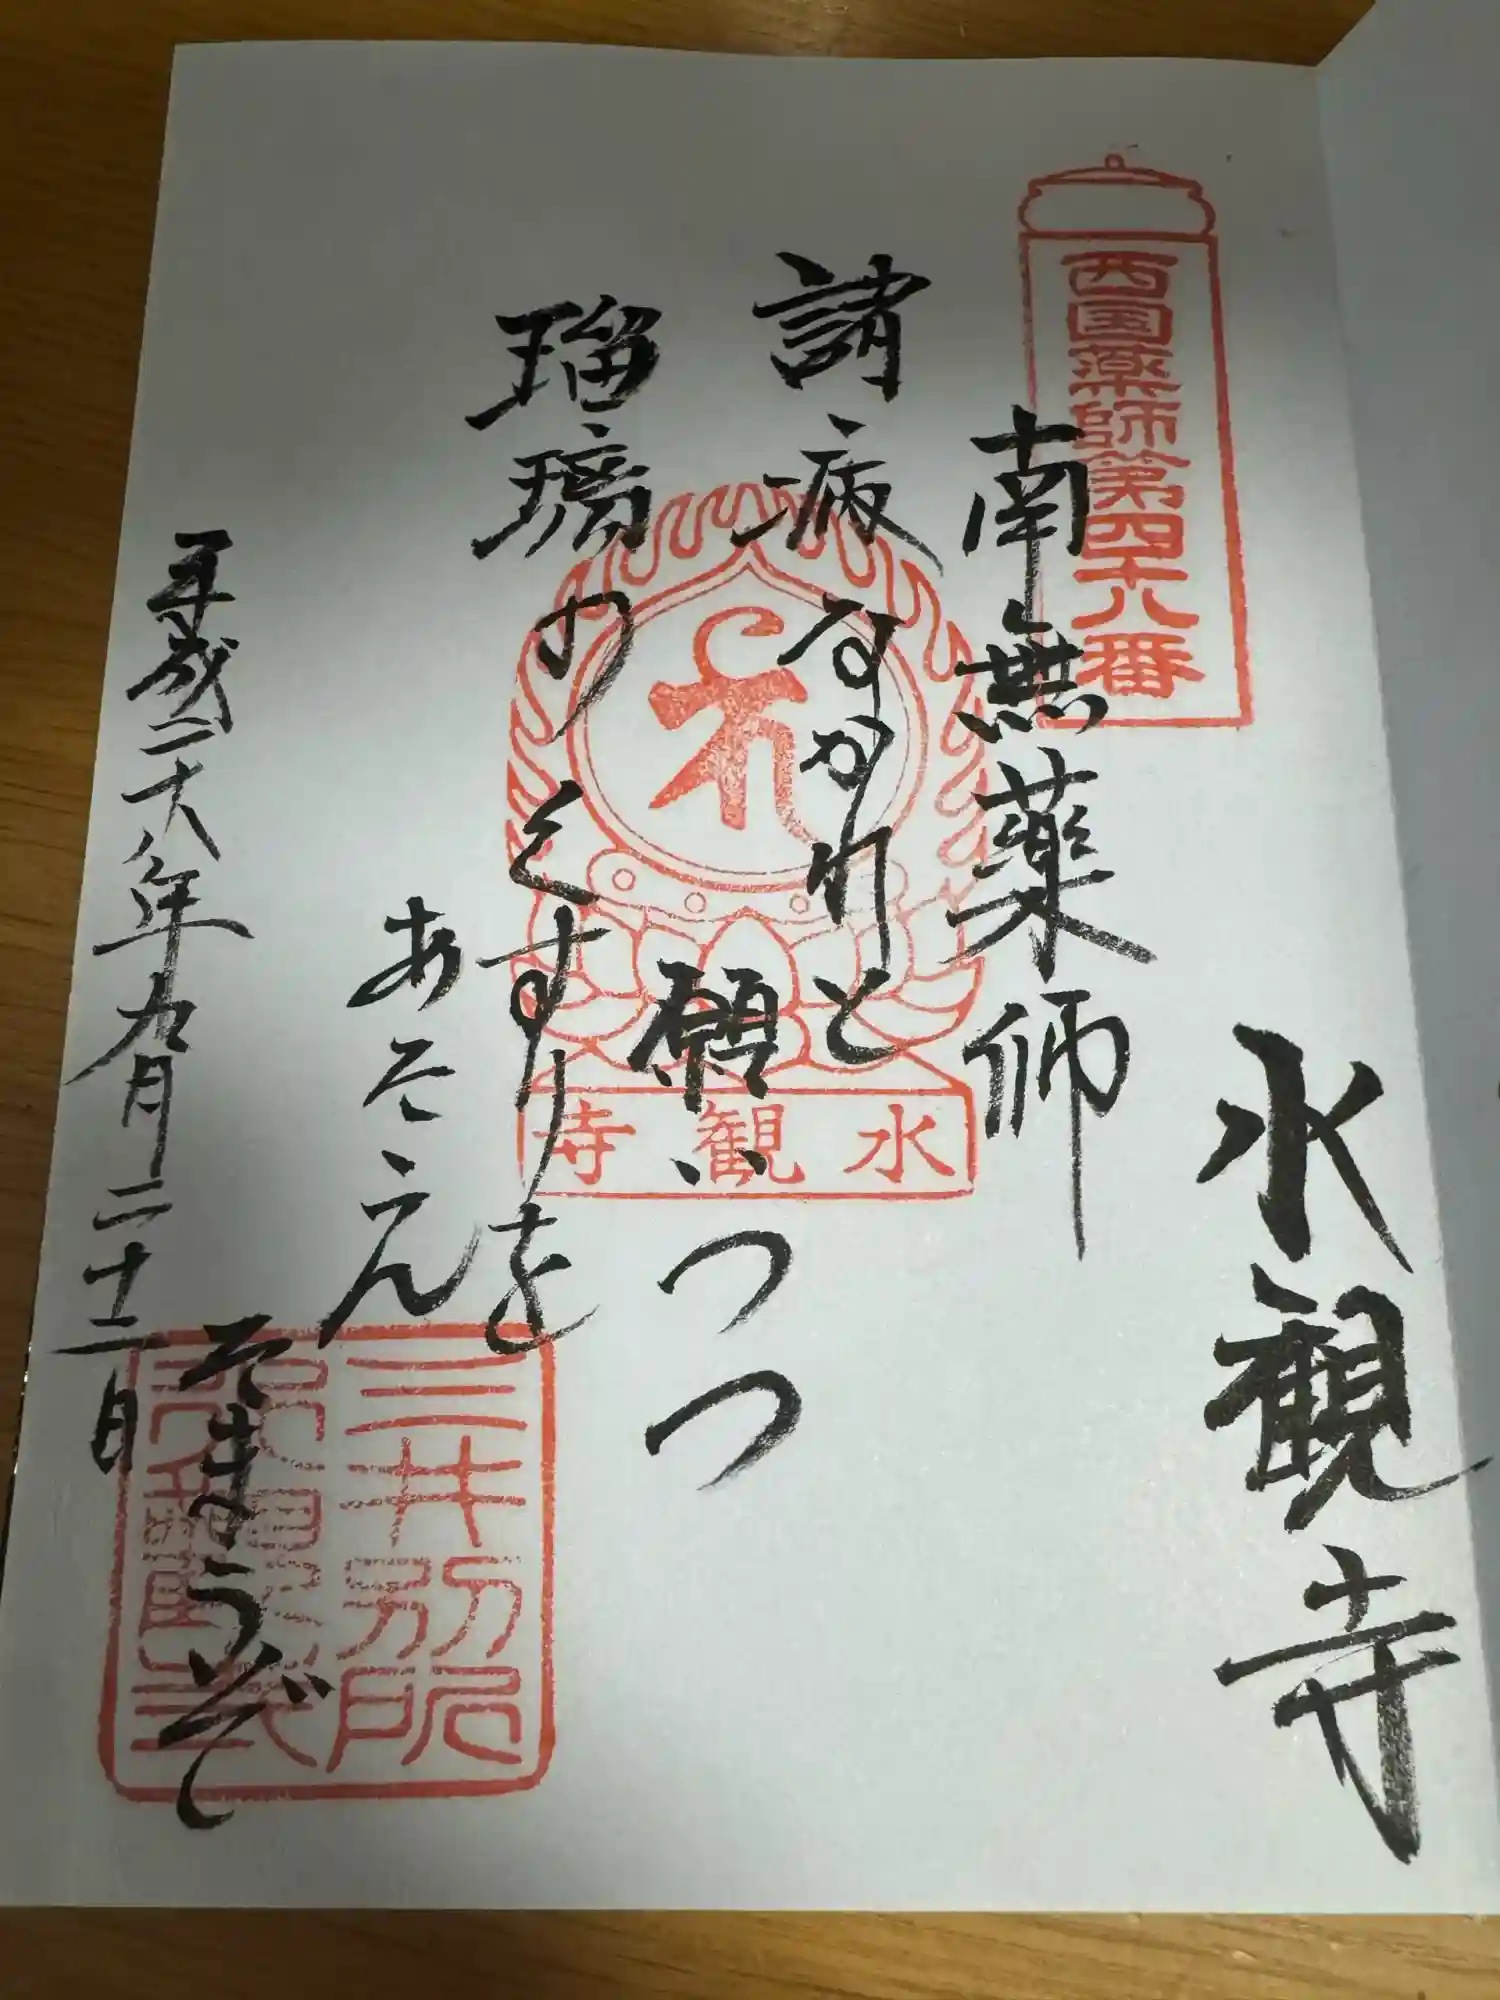 西国薬師第四十八番
水観寺
南無薬師
諸病なかれと
願いつつ
瑠璃のくすりを
あたえ
たまうぞ
平成二十八年九月二十二日
水観寺
三井別所